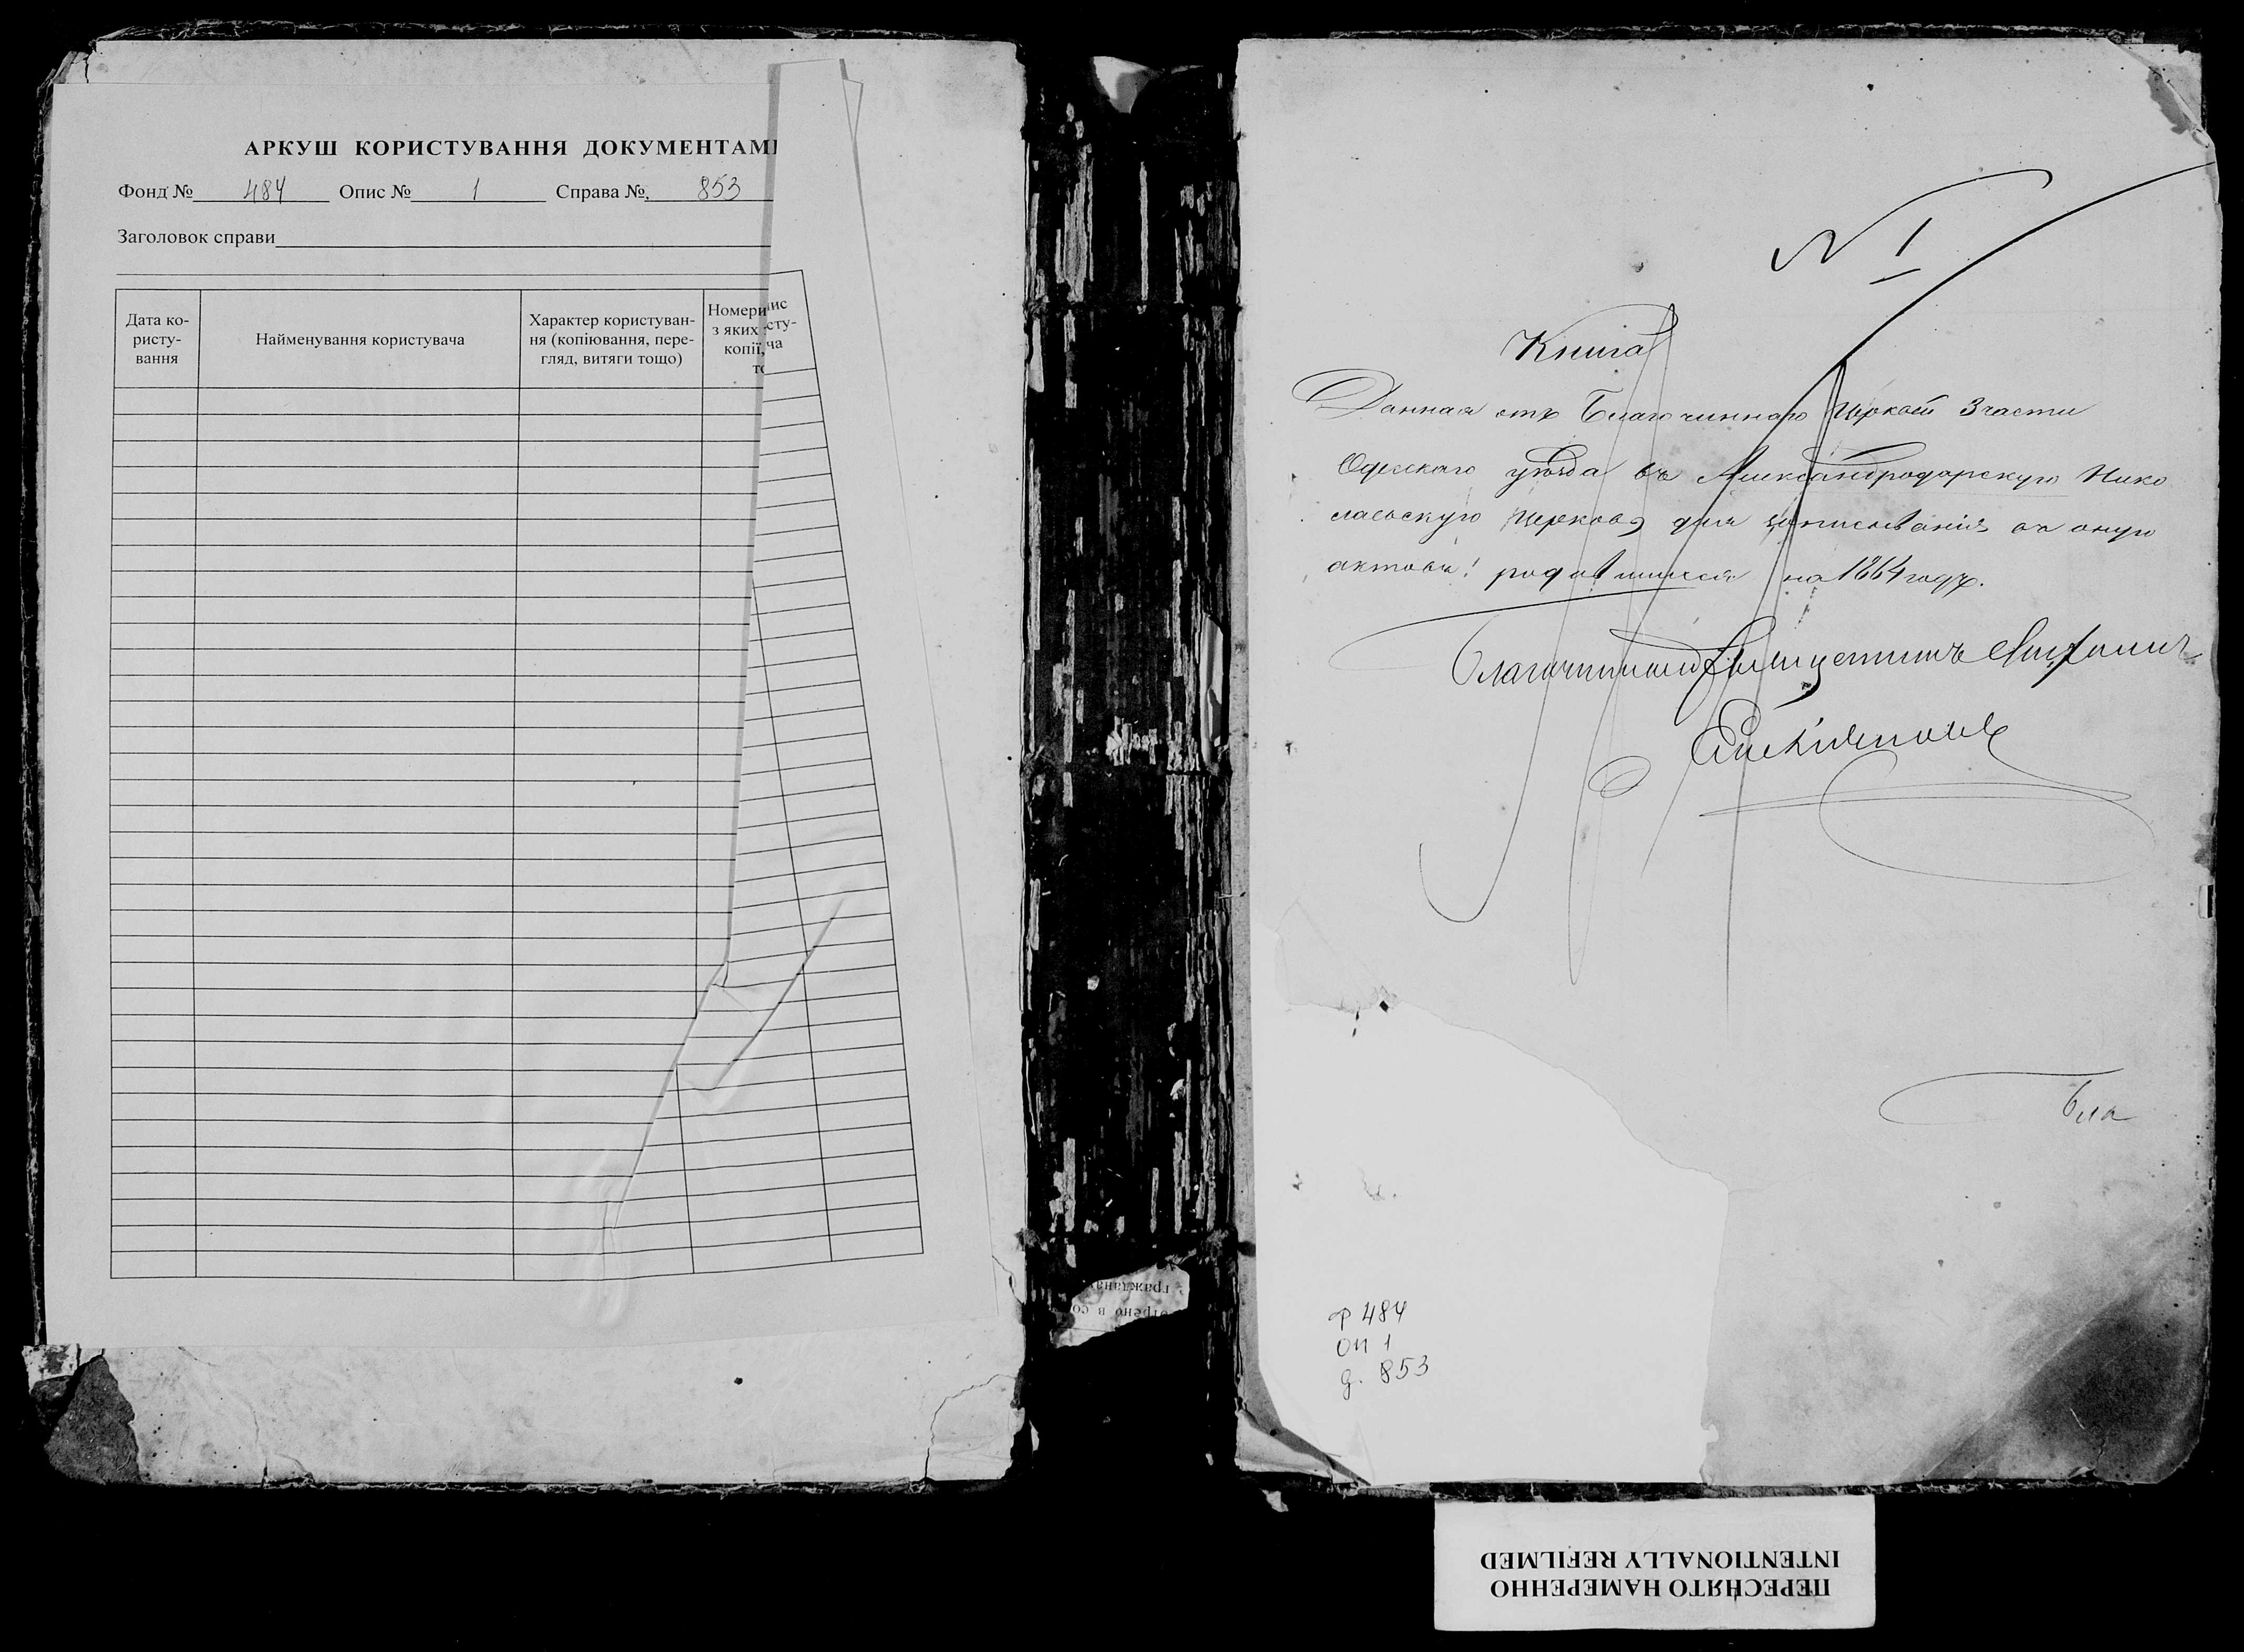 АРКУШ КОРИСТУВАННЯ ДОКУМЕНТАМИ
Фонд № 484 Опис № 1 Справа №. 853
Заголовок справи
Дата ко-
ристу-
вання
Найменування користувача
Характер користуван-
ня (копіювання, пере-
гляд, витяги тощо)
Номери
з яких
копії,
то
ис
сту-
ча
N 1
Книга
Данная отъ Благочиннаго Церквей 3 части
Одесскаго уѣзда въ Александродарскую Нико
лаевскую Церковь для записыванія въ оную
актовъ: родившихся на 1864 годъ.
Благочинный
Бла
ф 484
оп 1
д. 853
граждана
отрено в со
ПЕРЕСНЯТО НАМЕРЕННО
INTENTIONALLY REFILMED